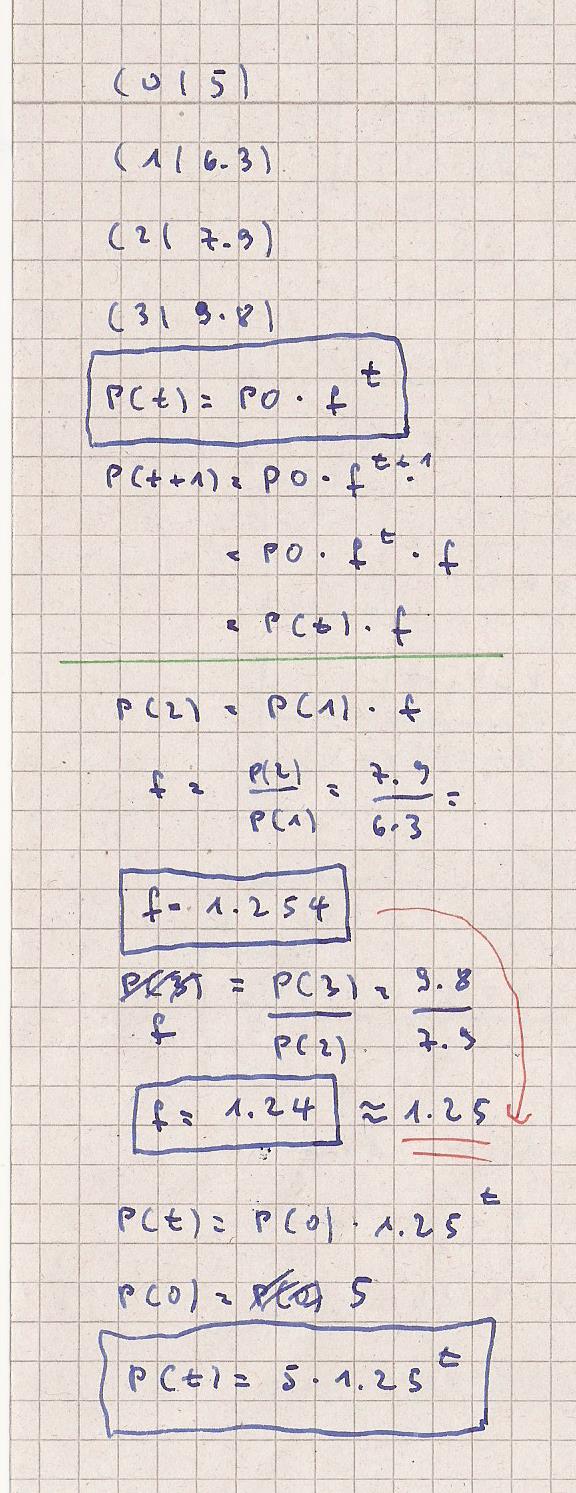 (0|5)
(1|6.3)
(2|7.9)
(3|9.8)
P(t) = P0 · f^t
P(t+1) = P0 · f^t+1
= P0 · f^t · f
= P(t) · f
P(2) = P(1) · f
f = P(2)/P(1) = 7.9/6.3 =
f = 1.254
P(3) f = P(3)/P(2) = 9.8/7.9
f = 1.24 ≈ 1.25
P(t) = P(0) · 1.25^t
P(0) = P(0) 5
P(t) = 5 · 1.25^t